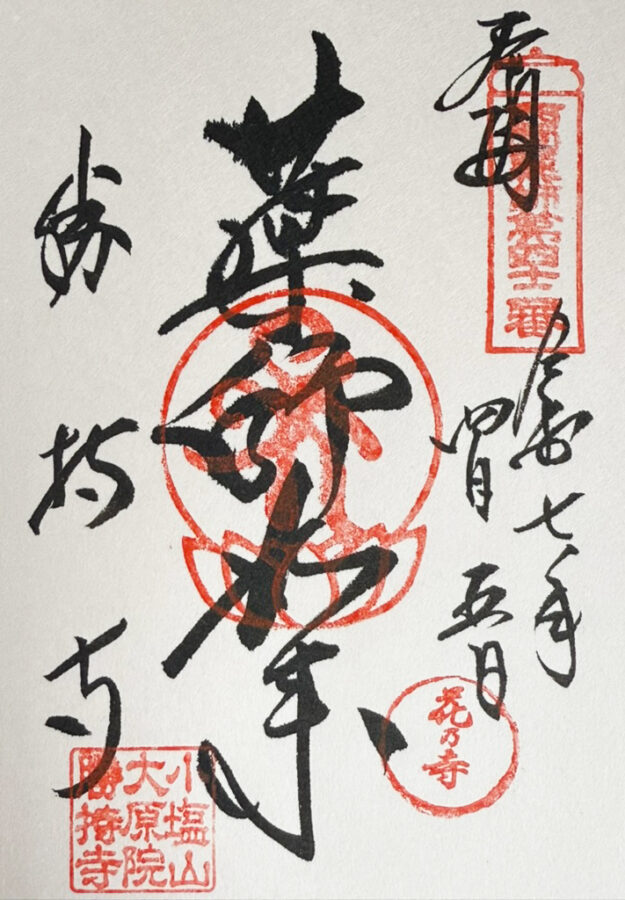 奉拝
西国薬師第四十二番
令和七年
四月五日
薬師如来
花乃寺
勝持寺
小塩山
大原院
勝持寺